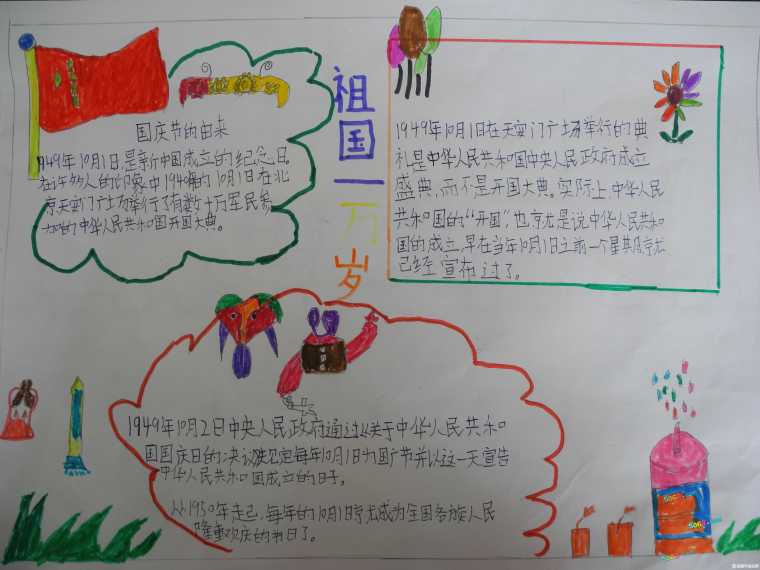 祖国一万岁
国庆节的由来
1949年10月1日,是新中国成立的纪念日
在许多人的印象中1949的10月1日在北
京天安门广场举行了有数十万军民参
加的中华人民共和国开国大典。
1949年10月1日在天安门广场举行的典
礼是中华人民共和国中央人民政府成立
盛典,而不是开国大典。实际上,中华人民
共和国的“开国”,也就是说中华人民共和
国的成立,早在当年10月1日之前一个星其月就
已经宣布过了。
1949年10月2日中央人民政府通过《关于中华人民共和
国国庆日的决议》规定每年10月1日为国庆节并以这一天宣告
中华人民共和国成立的日子。
从1950年走己,每年的10月1日就成为全国各族人民
隆重欢庆的节日了。